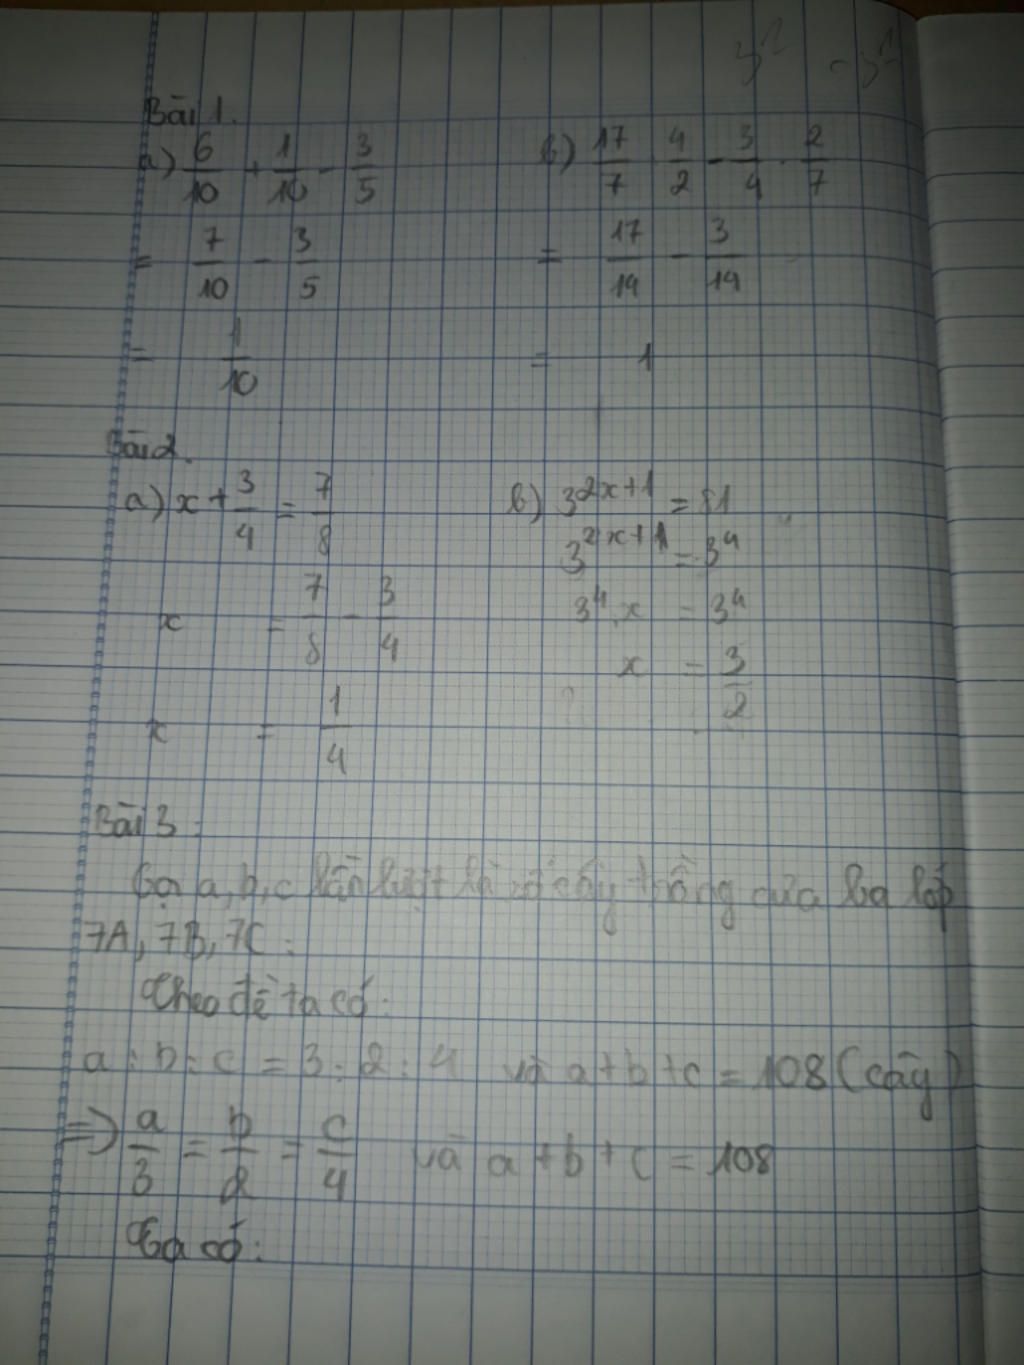 Bài 1.
a) 6/10 + 1/10 - 3/5
= 7/10 - 3/5
= 1/10
b) 17/7 · 4/2 - 3/4 · 2/7
= 17/14 - 3/14
= 1
Bài 2.
a) x + 3/4 = 7/8
x = 7/8 - 3/4
x = 1/4
b) 3^(2x+1) = 81
3^(2x+1) = 3^4
3^4 . x = 3^4
x = 3/2
Bài 3:
Gọi a, b, c lần lượt là số cây trồng của ba lớp
7A, 7B, 7C.
Theo đề ta có:
a : b : c = 3 : 2 : 4 và a + b + c = 108 (cây)
=> a/3 = b/2 = c/4 và a + b + c = 108
Ta có: